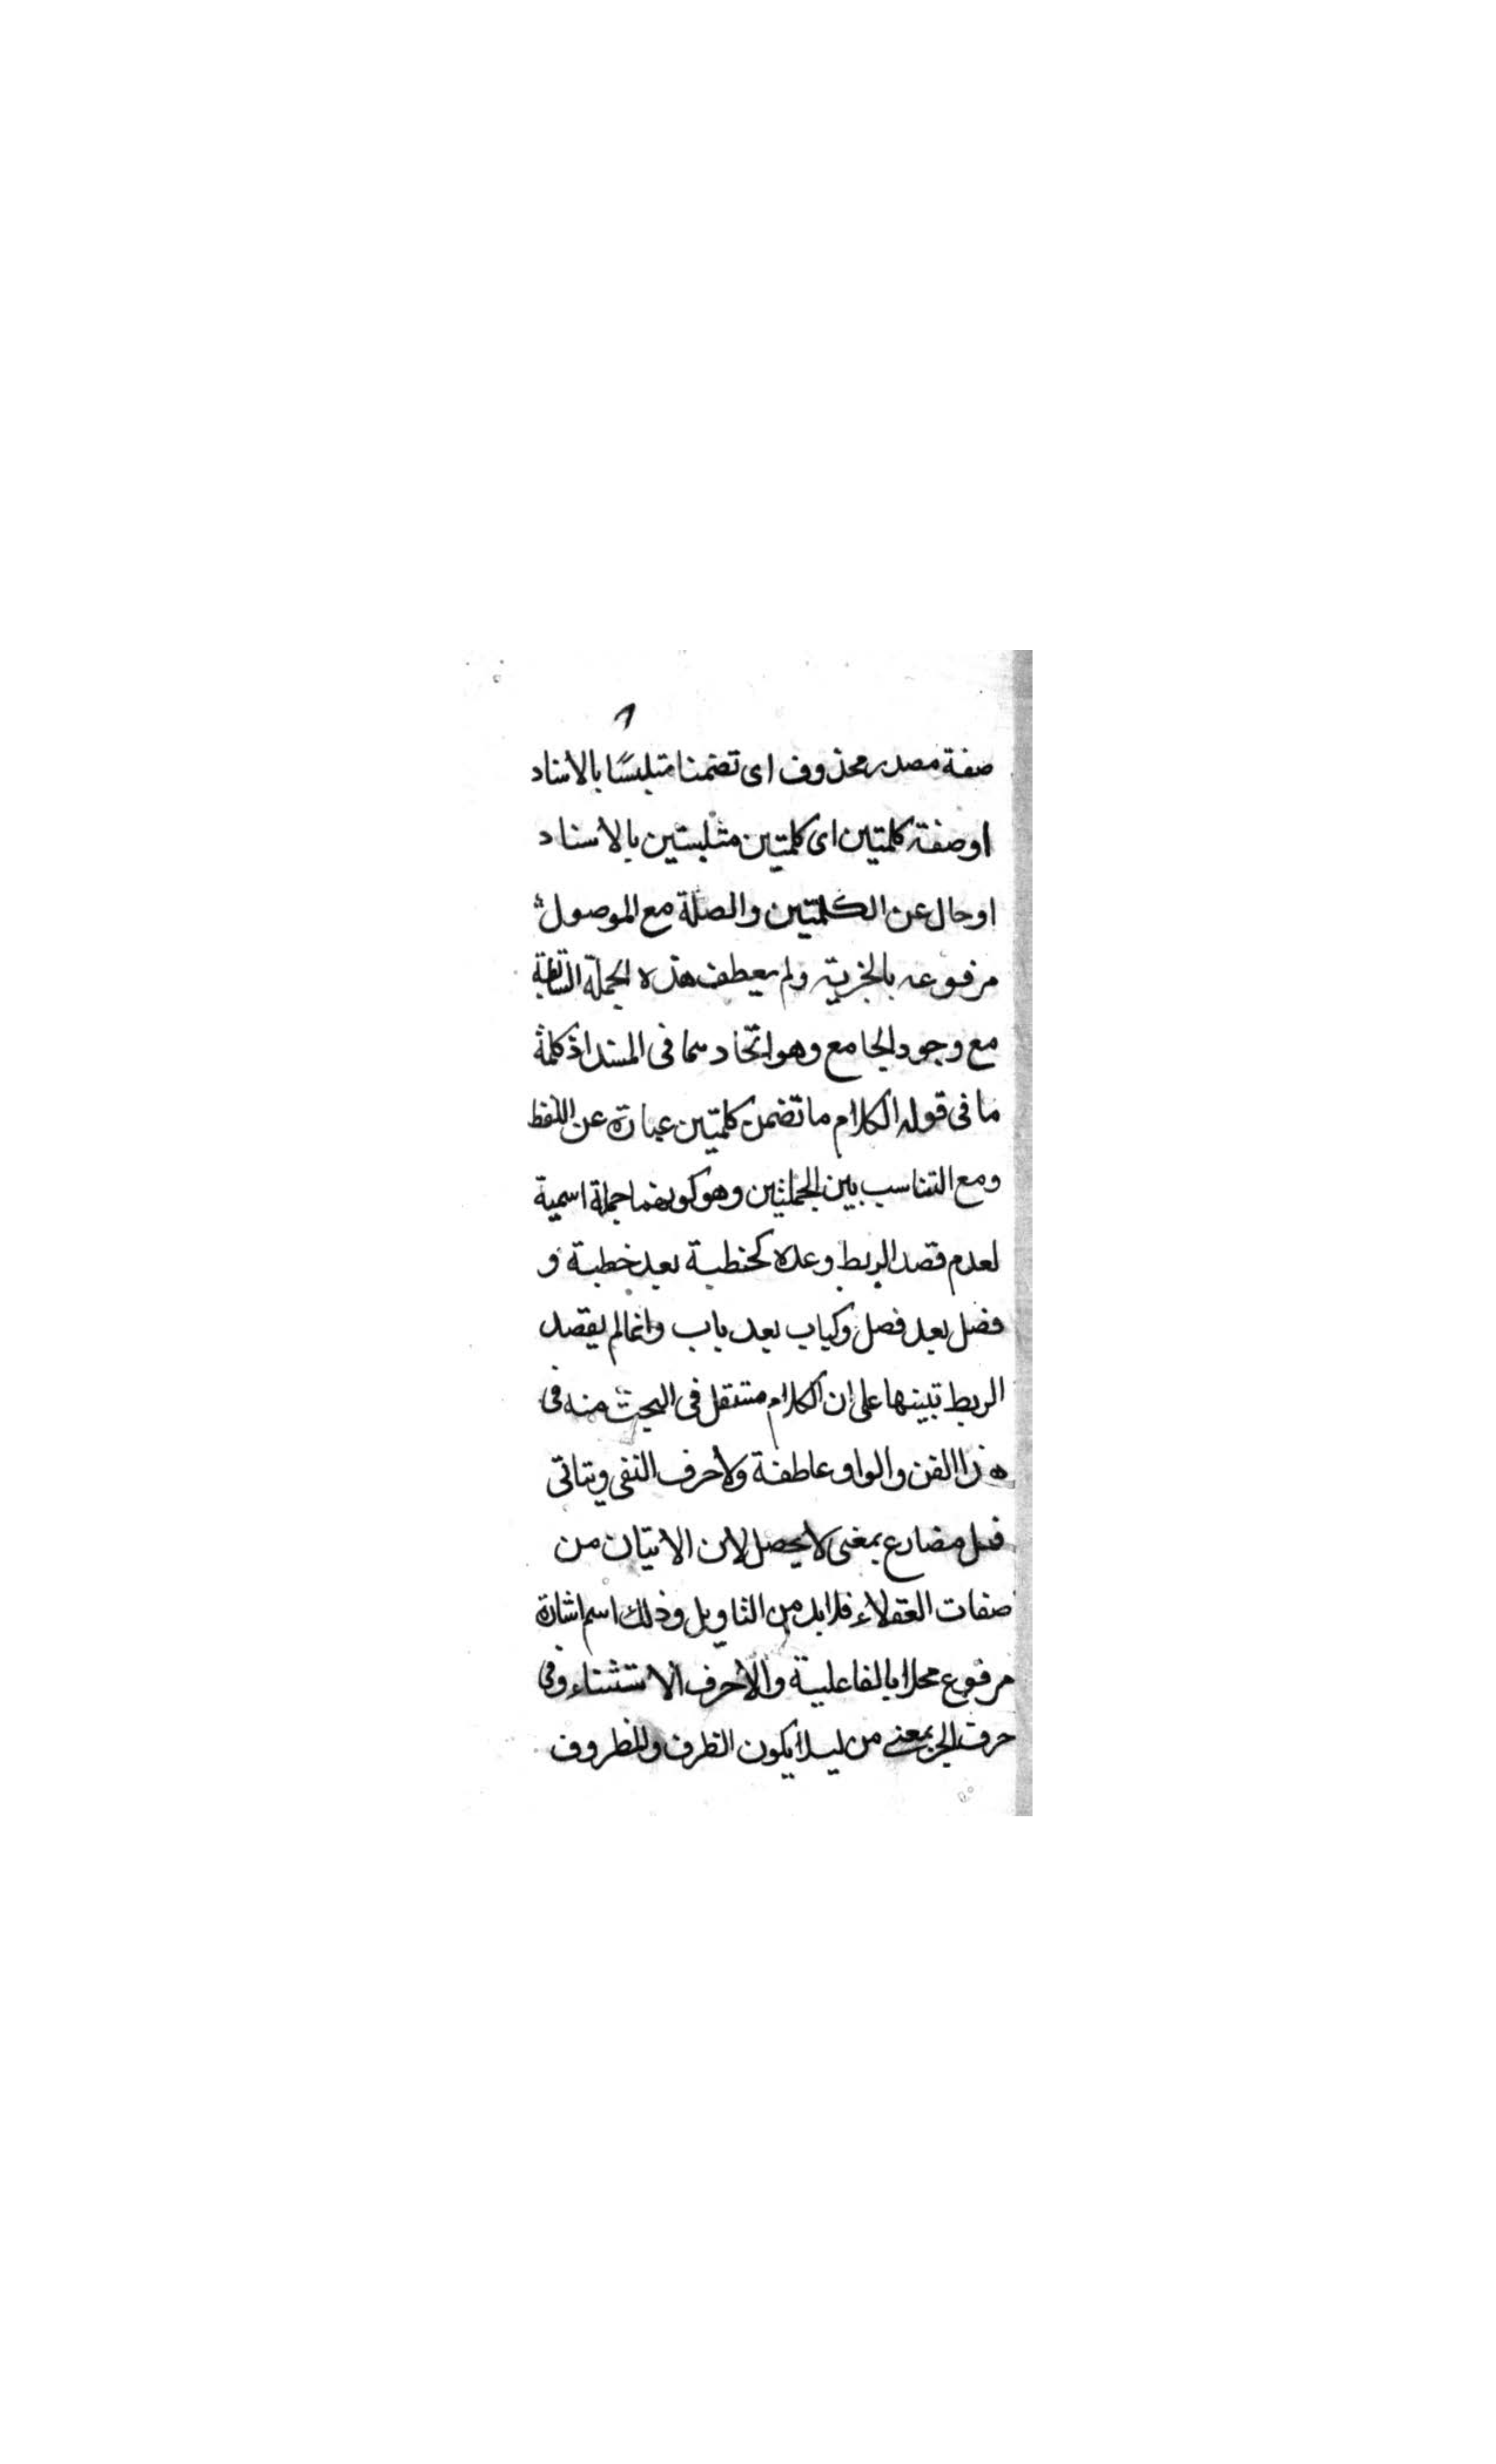 صفة مصدر محذوف اى تضمنا متلبسًا بالاسناد
او صفة كلمتين اى كلمتين متلبستين بالاسناد
او حال عن الكلمتين والصلة مع الموصول
مرفوعه بالخبرية ولم يعطف هذه الجملة السابقة
مع وجود الجامع وهو اتحادهما فى المسند اذ كلمة
ما فى قوله الكلام ما تضمن كلمتين عبارة عن اللفظ
ومع التناسب بين الجملتين وهو كونهما جملة اسمية
لعدم قصد الربط وعده كخطبة بعد خطبة و
فصل بعد فصل وكباب بعد باب وانما لم يقصد
الربط تبينها على ان الكلام مستقل فى البحث منه فى
هذا الفن والواو عاطفة ولا حرف النفى ويتاتى
فعل مضارع بمعنى لا يحصل لان الاتيان من
صفات العقلاء فلا بد من التاويل وذلك اسم اشارة
مرفوع محلا بالفاعلية والا حرف الاستثناء وفى
حرف الجر بمعنى من ليلا يكون الظرف والمظروف